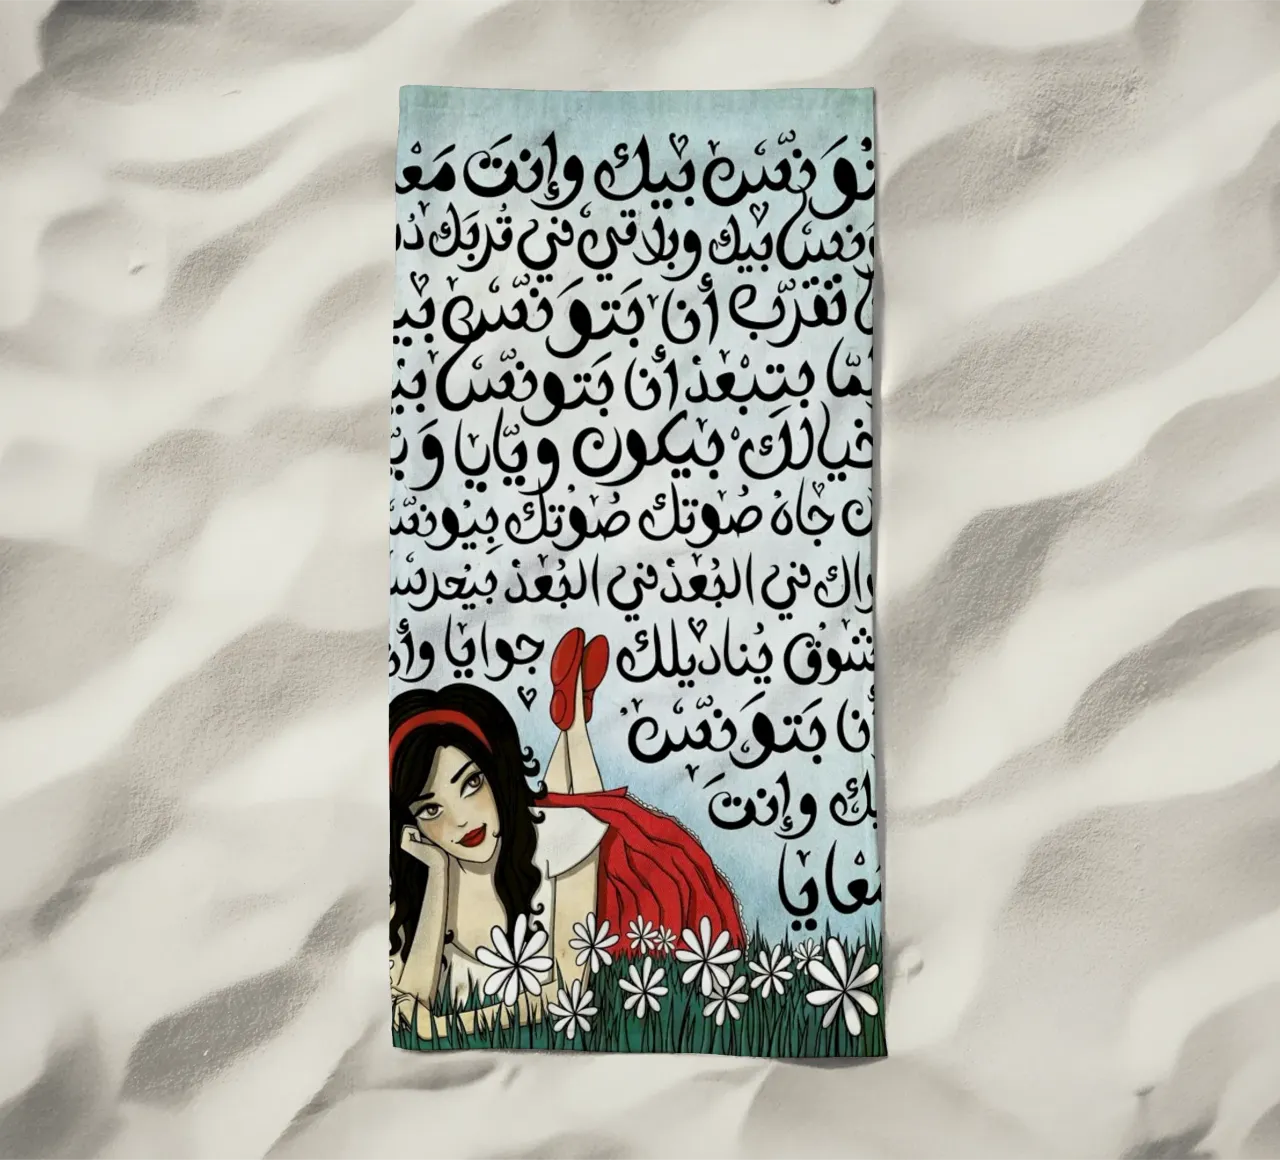 تَوَنّس بيك وإنتَ مَعـ
ونس بيك وبلاقي في قُربَك دُ
تقرّب أنا بَتوَنّس بيـ
لمّا بتبْعدْ أنا بَتونّس بيـ
خيالَكْ بيكون ويّايا وَيّـ
جاهْ صُوتك صُوتك بِيونسـ
راك في البُعدْ في البُعدْ بيْحرسـ
شوُق يُناديلك جوايا وأنـ
أنا بَتوَنّس
بيك وإنتَ
مْعايا